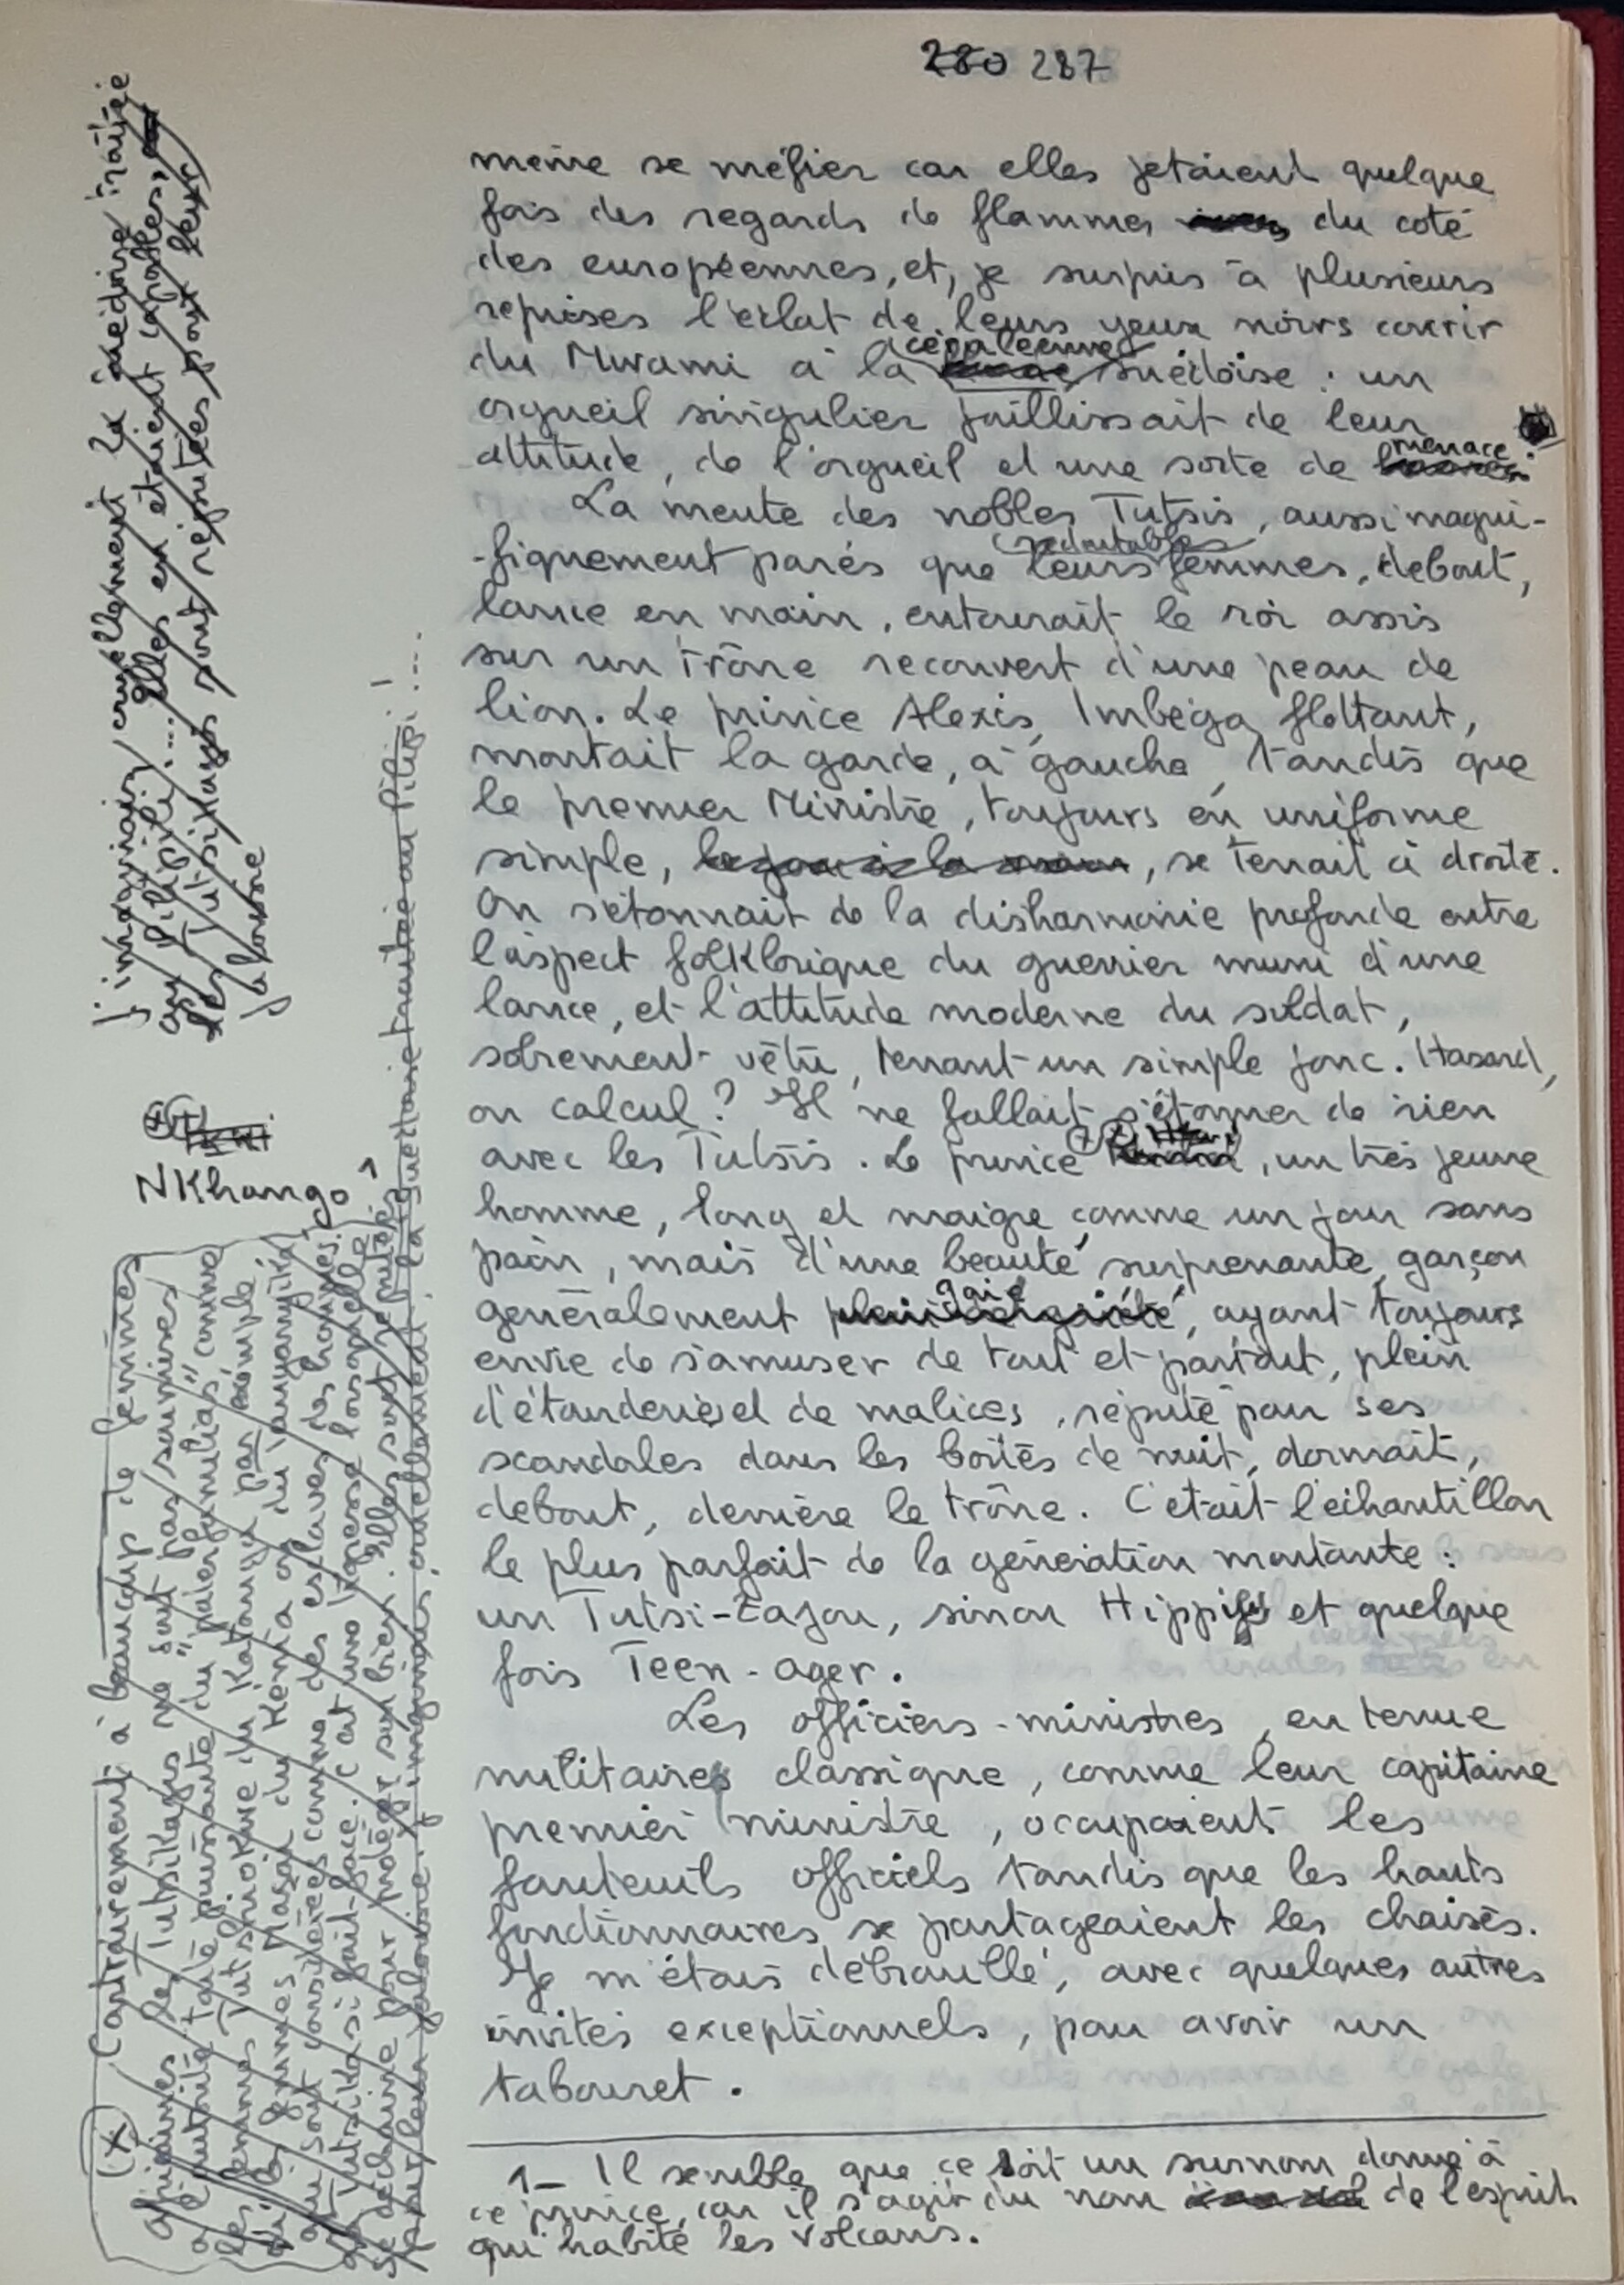 280 287
même se méfier car elles jetaient quelque
fois des regards de flammes du coté
des européennes, et, je surpris à plusieurs
reprises l'éclat de leurs yeux noirs courir
du Mwami à la suédoise : un
orgueil singulier jaillissait de leur
attitude, de l'orgueil et une sorte de menace.
La meute des nobles Tutsis, aussi magni-
-fiquement parés que leurs redoutables femmes, debout,
lance en main, entourait le roi assis
sur un trône recouvert d'une peau de
lion. Le prince Alexis, Imbéga flottant,
montait la garde, à gauche, tandis que
le premier Ministre, toujours en uniforme
simple, , se tenait à droite.
On s'étonnait de la disharmonie profonde entre
l'aspect folklorique du guerrier muni d'une
lance, et l'attitude moderne du soldat,
sobrement vêtu, tenant un simple jonc. Hasard,
ou calcul ? Il ne fallait s'étonner de rien
avec les Tutsis. Le prince , un très jeune
homme, long et maigre comme un jour sans
pain, mais d'une beauté surprenante, garçon
généralement gaie, ayant toujours
envie de s'amuser de tout et partout, plein
d'étourderie et de malices, réputé pour ses
scandales dans les boîtes de nuit, dormait,
debout, derrière le trône. C'était l'échantillon
le plus parfait de la génération montante :
un Tutsi-Zazou, sinon Hippy et quelque
fois Teen-ager.
Les officiers-ministres, en tenue
militaire classique, comme leur capitaine
premier ministre, occupaient les
fauteuils officiels tandis que les hauts
fonctionnaires se partageaient les chaises.
Je m'étais débrouillé, avec quelques autres
invités exceptionnels, pour avoir un
tabouret.
1- Il semble que ce soit un surnom donné à
ce prince, car il s'agit du nom de l'esprit
qui habite les volcans.
j'imaginais, cruellement la suédoise traitée
au Pilipili... Elles en étaient capables,
les Tutsikazis sont réputées pour leur
jalousie
NKhongo
(x) Contrairement à beaucoup de femmes
africaines, les Tutsikazis ne sont pas soumises
à l'autorité toute puissante du "paterfamilias" comme
les femmes Tutshiokwe du Katanga par exemple
ou les femmes Masaï du Kenia ou du Tanganyika,
qui sont considérées comme des esclaves des hommes.
La Tutsikasi fait face. C'est une tigresse lorsqu'elle
se déchaine pour protéger son bien. Elles sont réputées
pour leur jalousie. J'imaginais, cruellement, la suédoise traitée au Pilipili!...